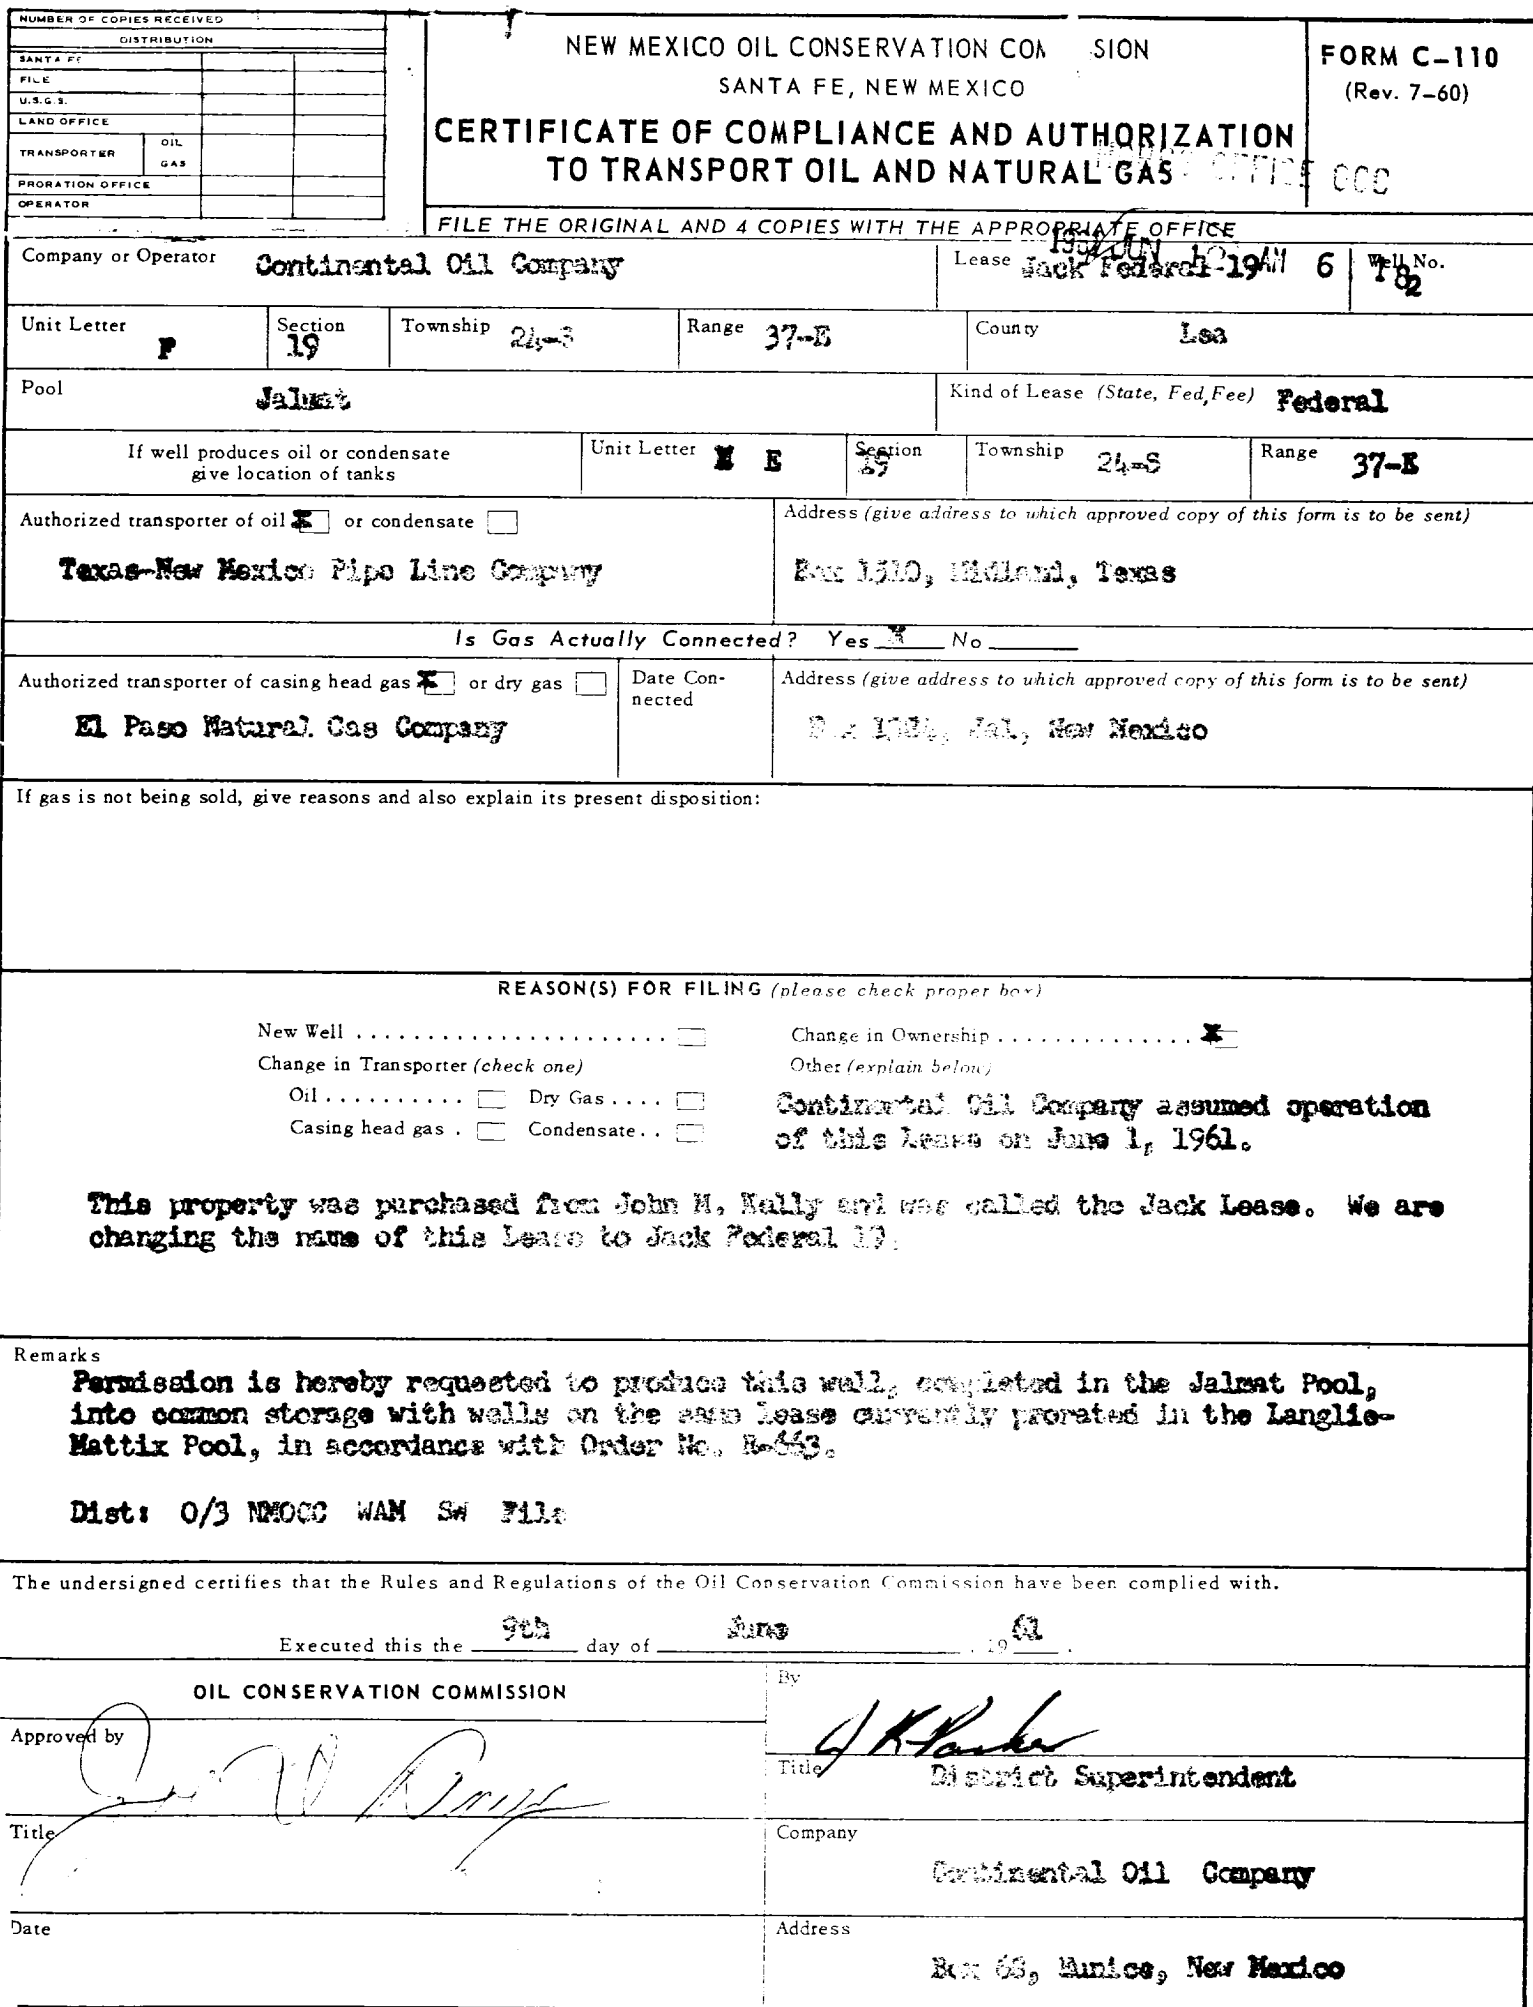 NUMBER OF COPIES RECEIVED
DISTRIBUTION
SANTA FE
FILE
U.S.G.S.
LAND OFFICE
TRANSPORTER OIL GAS
PRORATION OFFICE
OPERATOR
NEW MEXICO OIL CONSERVATION COM SION
SANTA FE, NEW MEXICO
CERTIFICATE OF COMPLIANCE AND AUTHORIZATION
TO TRANSPORT OIL AND NATURAL GAS
OFFICE OCC
FORM C-110
(Rev. 7-60)
FILE THE ORIGINAL AND 4 COPIES WITH THE APPROPRIATE OFFICE
Company or Operator Continental Oil Company Lease Jack Federal-19 Well No.
JUN AM 6
Unit Letter P Section 19 Township 24-S Range 37-E County Lea
Pool Jalmat Kind of Lease (State, Fed, Fee) Federal
If well produces oil or condensate
give location of tanks
Unit Letter E Section 19 Township 24-S Range 37-E
Authorized transporter of oil X or condensate Address (give address to which approved copy of this form is to be sent)
Texas-New Mexico Pipe Line Company Box 1510, Midland, Texas
Is Gas Actually Connected? Yes X No
Authorized transporter of casing head gas X or dry gas Date Con-
nected
Address (give address to which approved copy of this form is to be sent)
El Paso Natural Gas Company Jal, New Mexico
If gas is not being sold, give reasons and also explain its present disposition:
REASON(S) FOR FILING (please check proper box)
New Well . . . . . . . . . . . . . . . . . . . . . . Change in Ownership . . . . . . . . . . . . . . X
Change in Transporter (check one) Other (explain below)
Oil . . . . . . . . . . Dry Gas . . . .
Casing head gas . Condensate . .
Continental Oil Company assumed operation
of this Lease on June 1, 1961.
This property was purchased from John M. Kelly and was called the Jack Lease. We are
changing the name of this Lease to Jack Federal 19.
Remarks
Permission is hereby requested to produce this well, completed in the Jalmat Pool,
into common storage with wells on the same lease currently prorated in the Langlie-
Mattix Pool, in accordance with Order No. R-663.
Dist: O/3 NMOCC WAM SW File
The undersigned certifies that the Rules and Regulations of the Oil Conservation Commission have been complied with.
Executed this the 9th day of June , 19 61 .
OIL CONSERVATION COMMISSION
By J R Parker
Approved by
Title District Superintendent
Title
Company
Continental Oil Company
Date
Address
Box 68, Eunice, New Mexico